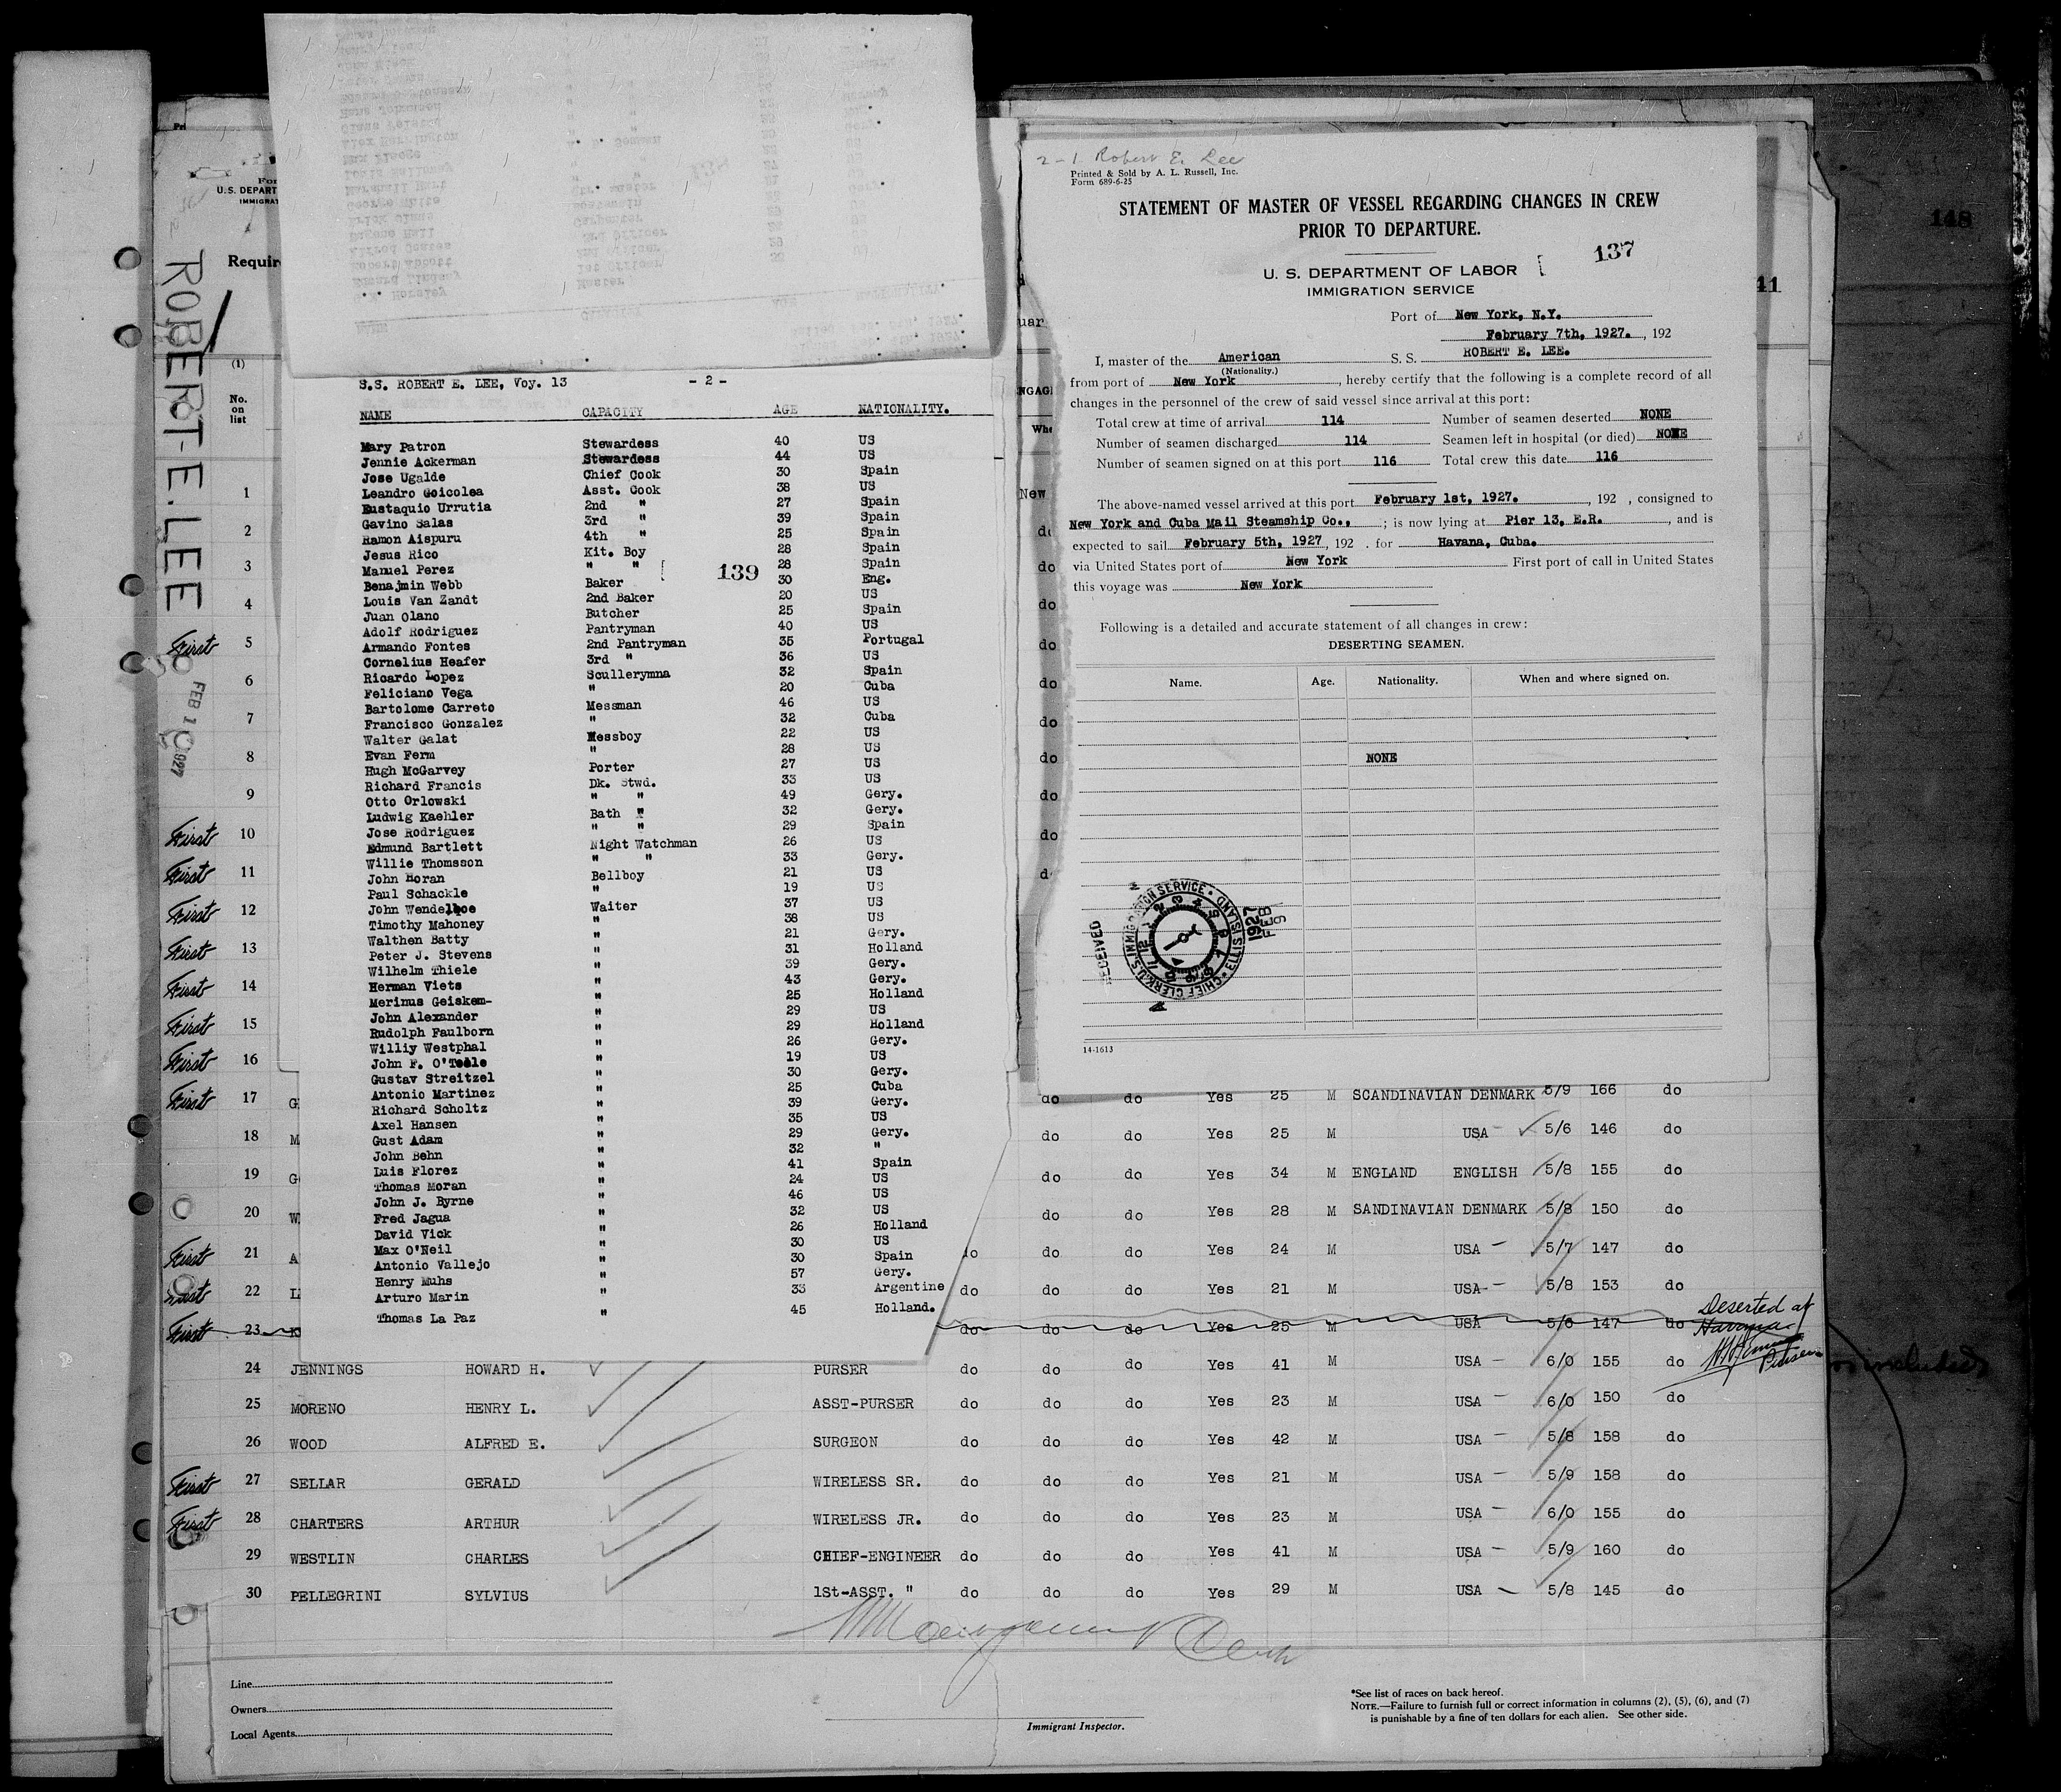 S.S. ROBERT E. LEE, Voy. 13 - 2 -
NAME CAPACITY AGE NATIONALITY.
Mary Patron Stewardess 40 US
Jennie Ackerman Stewardess 44 US
Jose Ugalde Chief Cook 30 Spain
Leandro Goicolea Asst. Cook 38 US
Eustaquio Urrutia 2nd " 27 Spain
Gavino Salas 3rd " 39 Spain
Ramon Aispuru 4th " 25 Spain
Jesus Rico Kit. Boy 28 Spain
Manuel Perez " " 28 Spain
139
Benajmin Webb Baker 30 Eng.
Louis Van Zandt 2nd Baker 20 US
Juan Olano Butcher 25 Spain
Adolf Rodriguez Pantryman 40 US
Armando Fontes 2nd Pantryman 35 Portugal
Cornelius Heafer 3rd " 36 US
Ricardo Lopez Scullerymna 32 Spain
Feliciano Vega " 20 Cuba
Bartolome Carreto Messman 46 US
Francisco Gonzalez " 32 Cuba
Walter Galat Messboy 22 US
Evan Ferm " 28 US
Hugh McGarvey Porter 27 US
Richard Francis Dk. Stwd. 33 US
Otto Orlowski " " 49 Gery.
Ludwig Kaehler Bath " 32 Gery.
Jose Rodriguez " " 29 Spain
Edmund Bartlett Night Watchman 26 US
Willie Thomsson " " 33 Gery.
John Horan Bellboy 21 US
Paul Schackle " 19 US
John Wendelboe Waiter 37 US
Timothy Mahoney " 38 US
Walthen Batty " 21 Gery.
Peter J. Stevens " 31 Holland
Wilhelm Thiele " 39 Gery.
Herman Viets " 43 Gery.
Merinus Geiskem- " 25 Holland
John Alexander " 29 US
Rudolph Faulborn " 29 Holland
Williy Westphal " 26 Gery.
John F. O'Toole " 19 US
Gustav Streitzel " 30 Gery.
Antonio Martinez " 25 Cuba
Richard Scholtz " 39 Gery.
Axel Hansen " 35 US
Gust Adam " 29 Gery.
John Behn " 32 "
Luis Florez " 41 Spain
Thomas Moran " 24 US
John J. Byrne " 46 US
Fred Jagua " 32 US
David Vick " 26 Holland
Max O'Neil " 30 US
Antonio Vallejo " 30 Spain
Henry Muhs " 57 Gery.
Arturo Marin " 33 Argentine
Thomas La Paz " 45 Holland.
2-1 Robert E. Lee
Printed & Sold by A. L. Russell, Inc.
Form 689-6-25
STATEMENT OF MASTER OF VESSEL REGARDING CHANGES IN CREW
PRIOR TO DEPARTURE.
137
U. S. DEPARTMENT OF LABOR
IMMIGRATION SERVICE
Port of New York, N.Y.
February 7th, 1927. , 192
I, master of the American S. S. ROBERT E. LEE.
(Nationality.)
from port of New York , hereby certify that the following is a complete record of all
changes in the personnel of the crew of said vessel since arrival at this port:
Total crew at time of arrival 114 Number of seamen deserted NONE
Number of seamen discharged 114 Seamen left in hospital (or died) NONE
Number of seamen signed on at this port 116 Total crew this date 116
The above-named vessel arrived at this port February 1st, 1927. , 192 , consigned to
New York and Cuba Mail Steamship Co., ; is now lying at Pier 13, E.R. , and is
expected to sail February 5th, 1927 , 192 . for Havana, Cuba.
via United States port of New York First port of call in United States
this voyage was New York
Following is a detailed and accurate statement of all changes in crew:
DESERTING SEAMEN.
Name. Age. Nationality. When and where signed on.
NONE
RECEIVED
U.S. IMMIGRATION SERVICE • ELLIS ISLAND • CHIEF CLERK
FEB 9 1927
14-1613
ROBERT-E. LEE
FEB 10 1927
U.S. DEPART
IMMIGRAT
Requir
(1)
No. on list
41
148
1
2
3
4
First 5
6
7
8
9
First 10
First 11
First 12
First 13
First 14
First 15
First 16
First 17 G do do Yes 25 M SCANDINAVIAN DENMARK 5/9 166 do
18 M do do Yes 25 M USA 5/6 146 do
19 G do do Yes 34 M ENGLAND ENGLISH 5/8 155 do
20 W do do Yes 28 M SANDINAVIAN DENMARK 5/8 150 do
First 21 A do do do Yes 24 M USA 5/7 147 do
First 22 L do do do Yes 21 M USA 5/8 153 do
First 23 do do do Yes 25 M USA 5/6 147 do Deserted at Havana Purser
24 JENNINGS HOWARD H. PURSER do do do Yes 41 M USA 6/0 155 do
25 MORENO HENRY L. ASST-PURSER do do do Yes 23 M USA 6/0 150 do
26 WOOD ALFRED E. SURGEON do do do Yes 42 M USA 5/8 158 do
First 27 SELLAR GERALD WIRELESS SR. do do do Yes 21 M USA 5/9 158 do
First 28 CHARTERS ARTHUR WIRELESS JR. do do do Yes 23 M USA 6/0 155 do
29 WESTLIN CHARLES CHIEF-ENGINEER do do do Yes 41 M USA 5/9 160 do
30 PELLEGRINI SYLVIUS 1St-ASST. " do do do Yes 29 M USA 5/8 145 do
Line
Owners
Local Agents
Immigrant Inspector.
*See list of races on back hereof.
NOTE.—Failure to furnish full or correct information in columns (2), (5), (6), and (7)
is punishable by a fine of ten dollars for each alien. See other side.